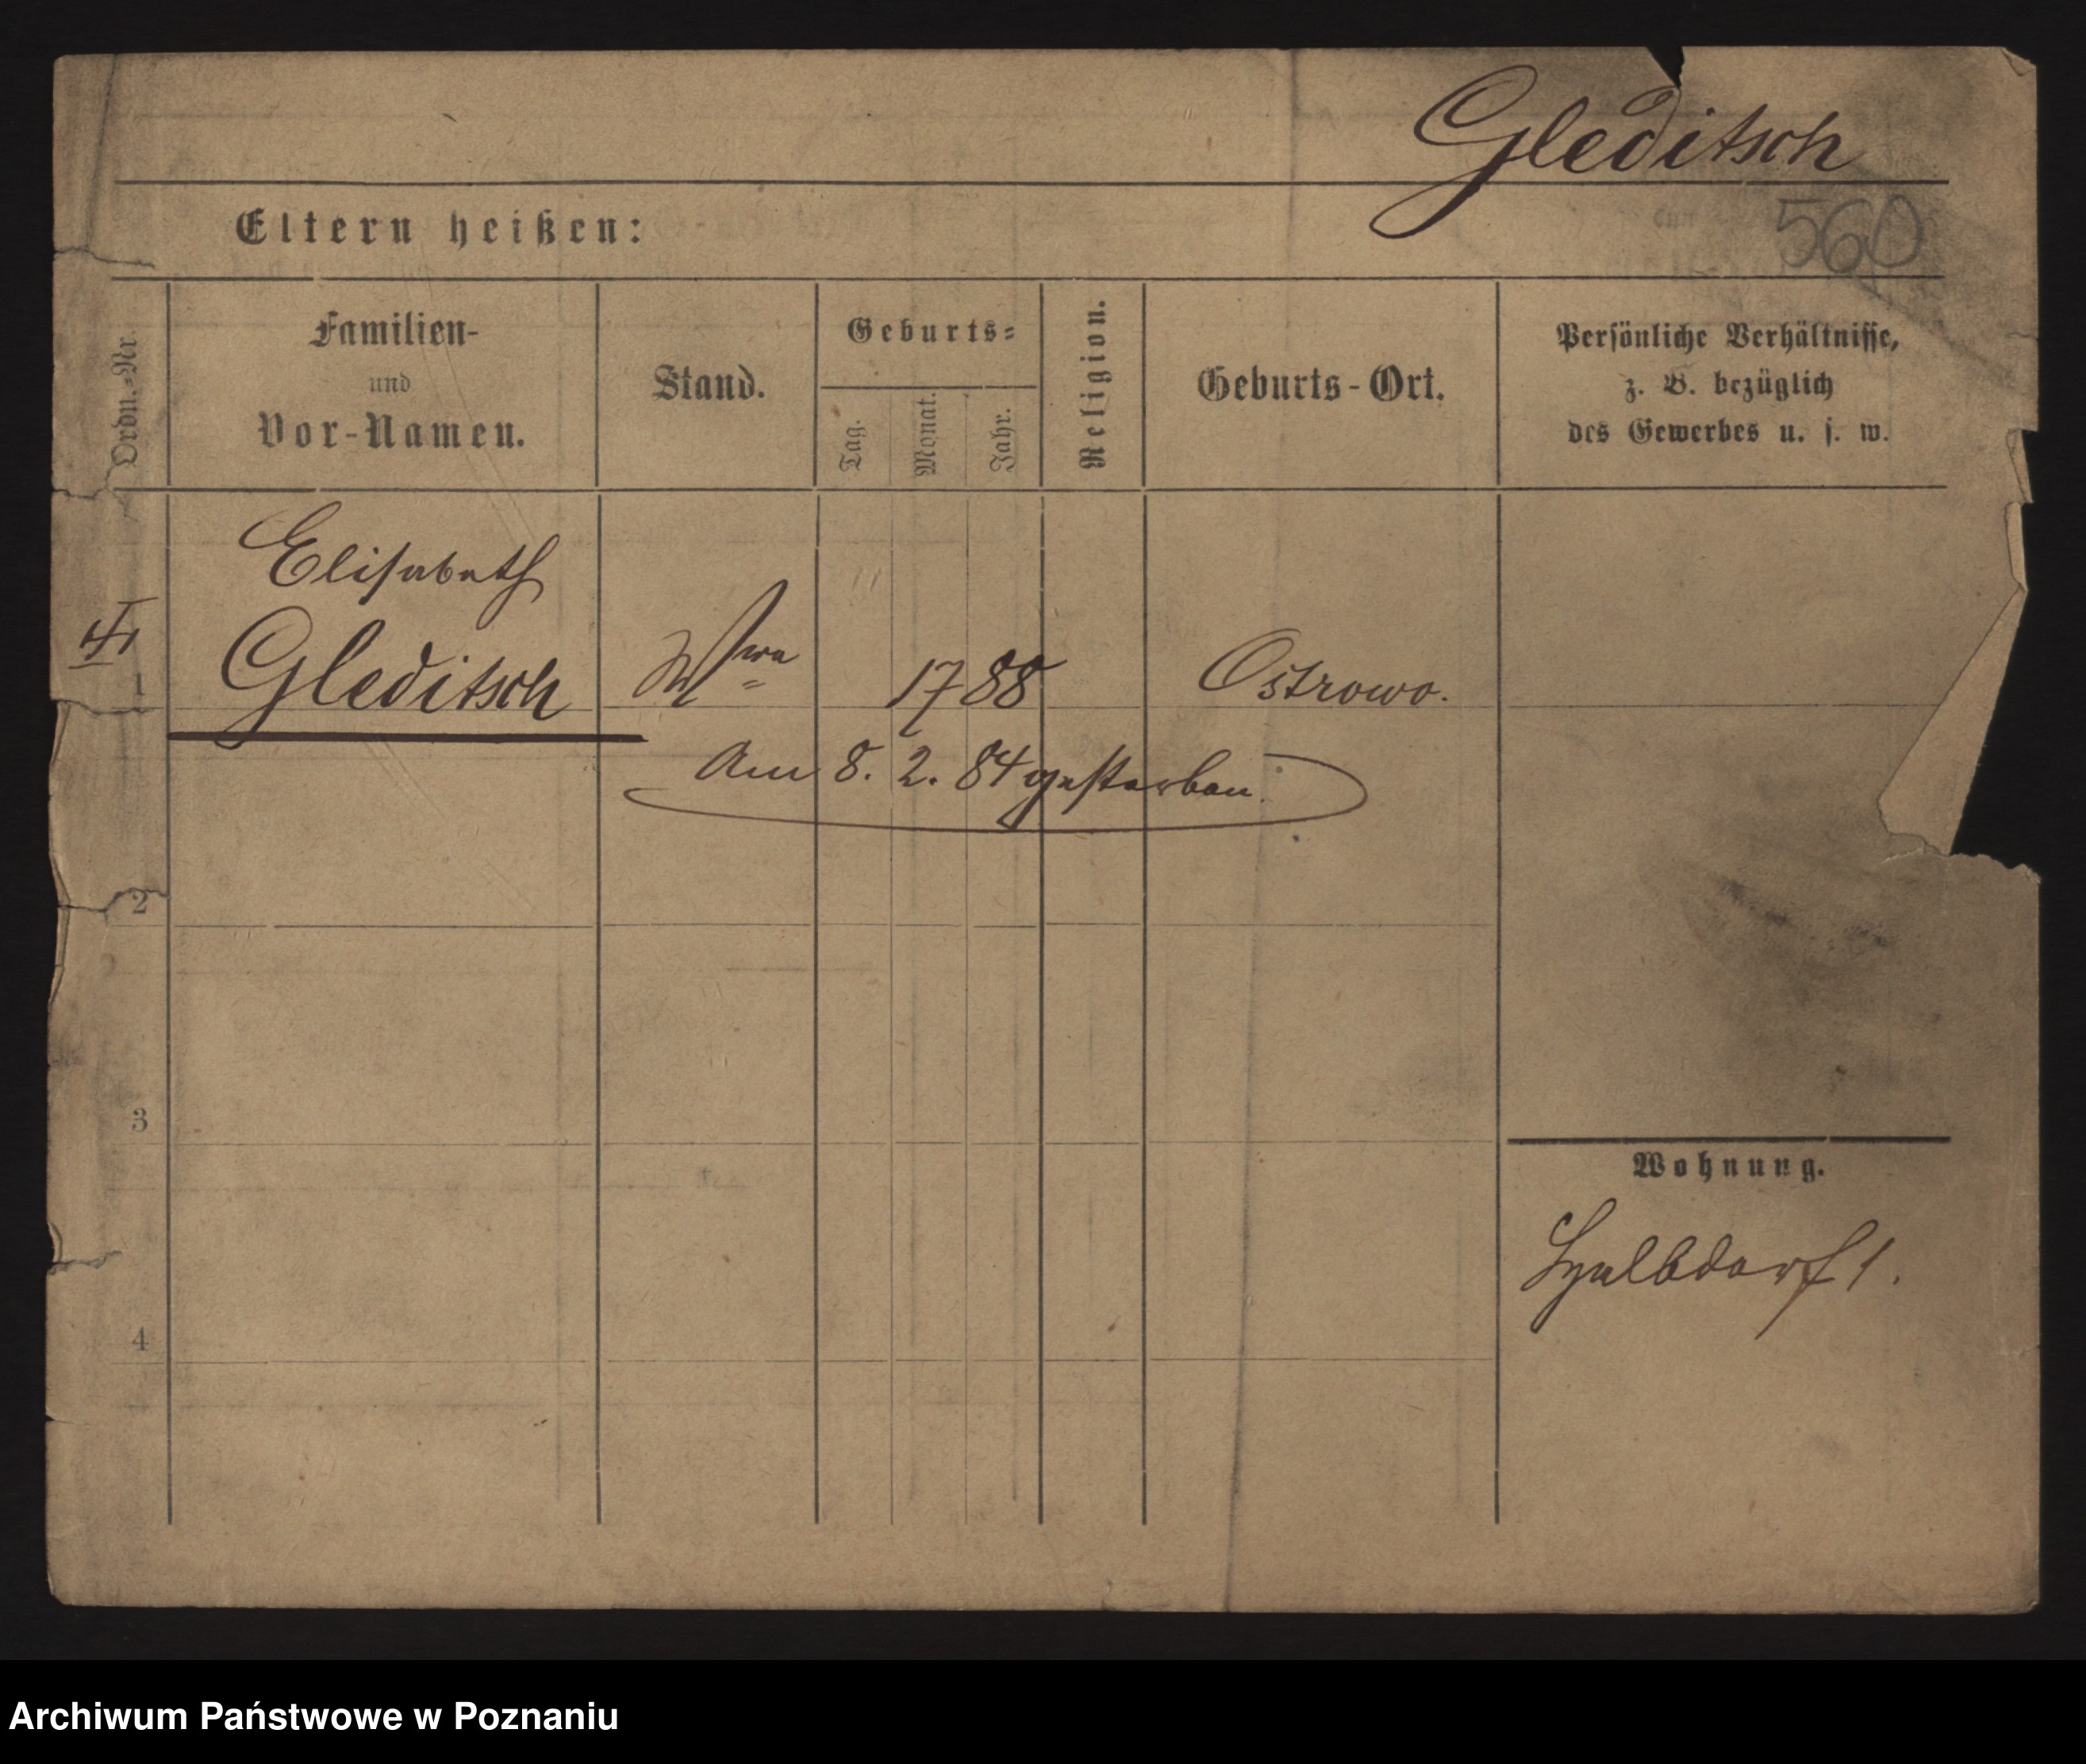 Gleditsch
Eltern heißen:
560
Ordn.-Nr.
Familien-
und
Vor-Namen.
Stand.
Geburts-
Tag.
Monat.
Jahr.
Religion.
Geburts-Ort.
Persönliche Verhältnisse,
z. B. bezüglich
des Gewerbes u. s. w.
Elisabeth
1 Gleditsch Wwe 1788 Ostrowo.
Am 8. 2. 84 gestorben.
2
3
Wohnung.
Halbdorf 1.
4
Archiwum Państwowe w Poznaniu